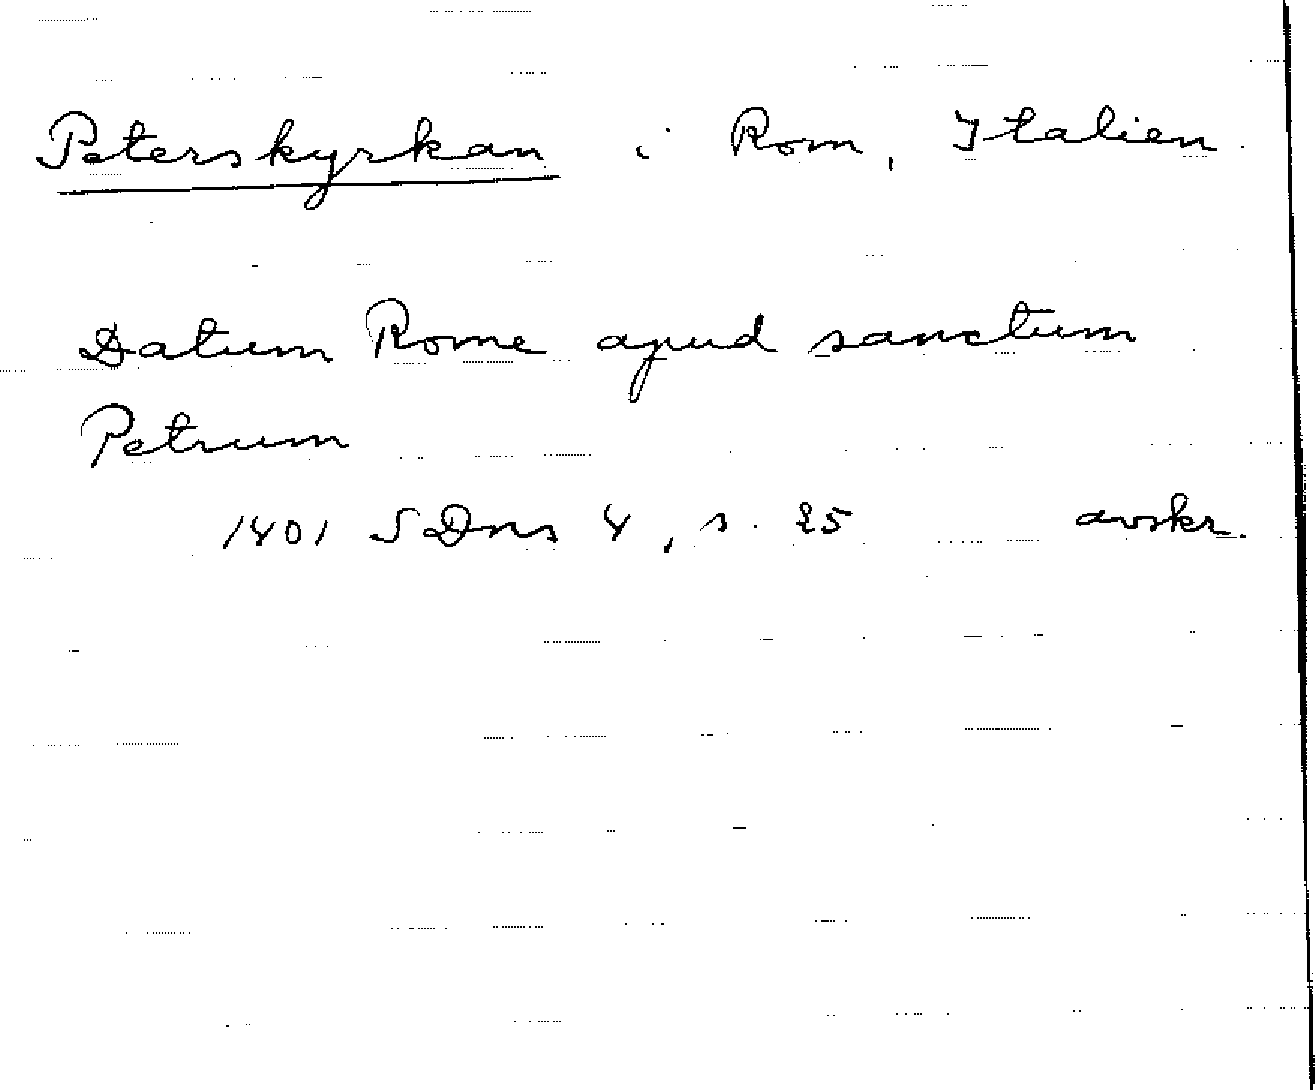 Peterskyrkan i Rom, Italien.
Datum Rome apud sanctum
Petrum
1401 SDns 4, s. 25 avskr.